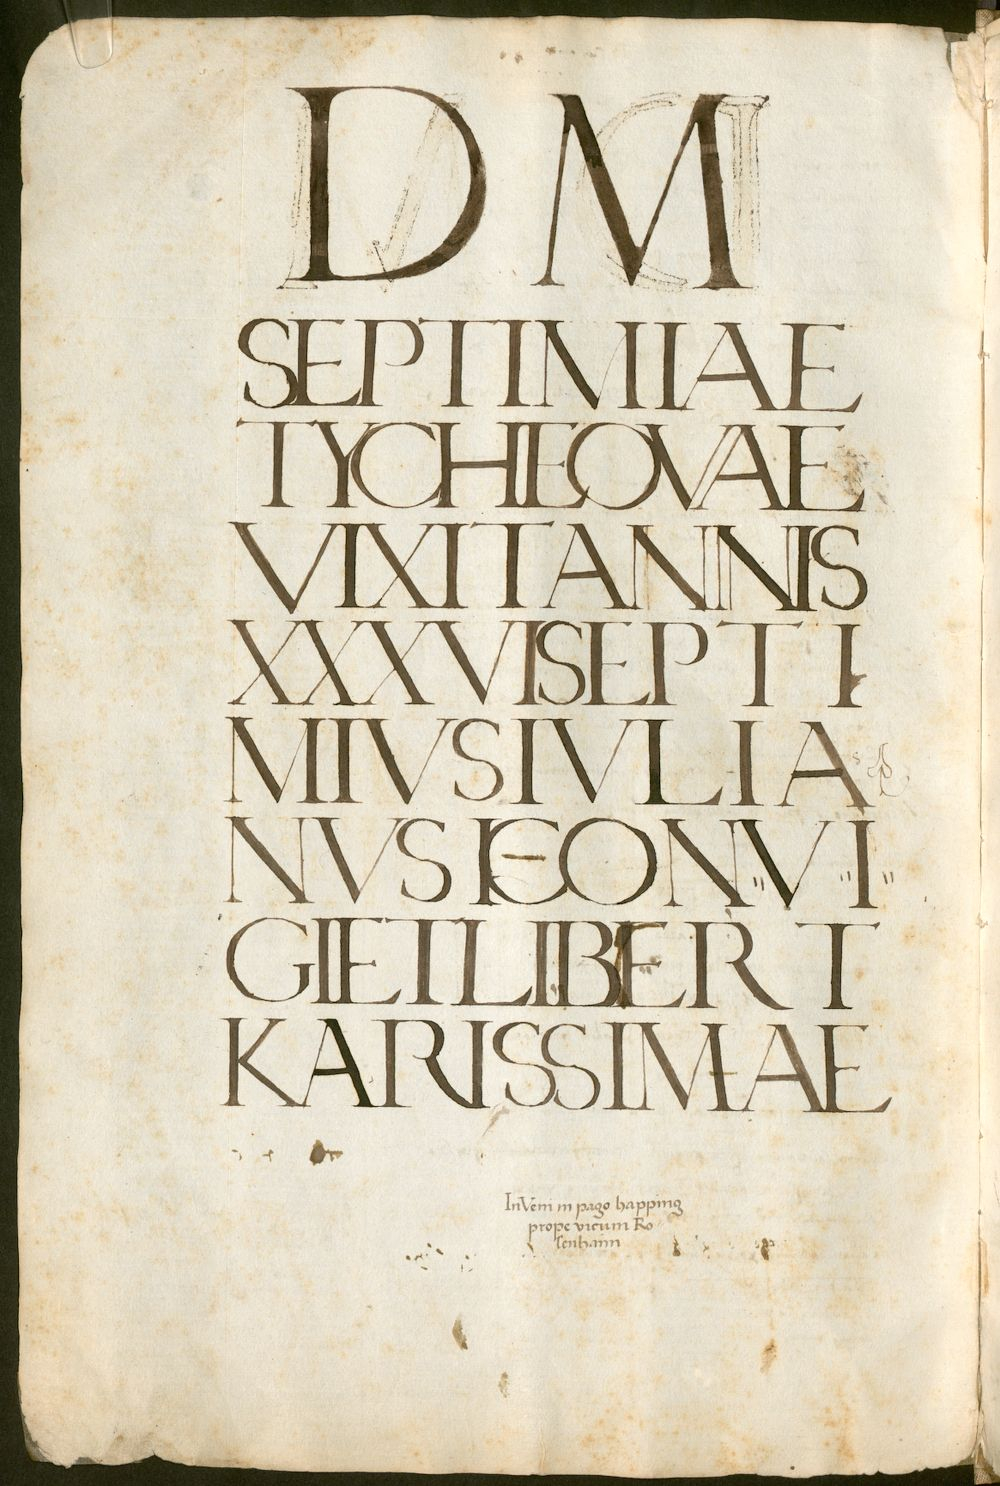 D M
SEPTIMIAE
TYCHEOVAE
VIXIT ANNIS
XXXVI SEPTI
MIVS IVLIA
NVS CON"V"I"
GI ET LIBERT
KARISSIMAE
InVeni in pago happing
prope vicum Ro
senhaim